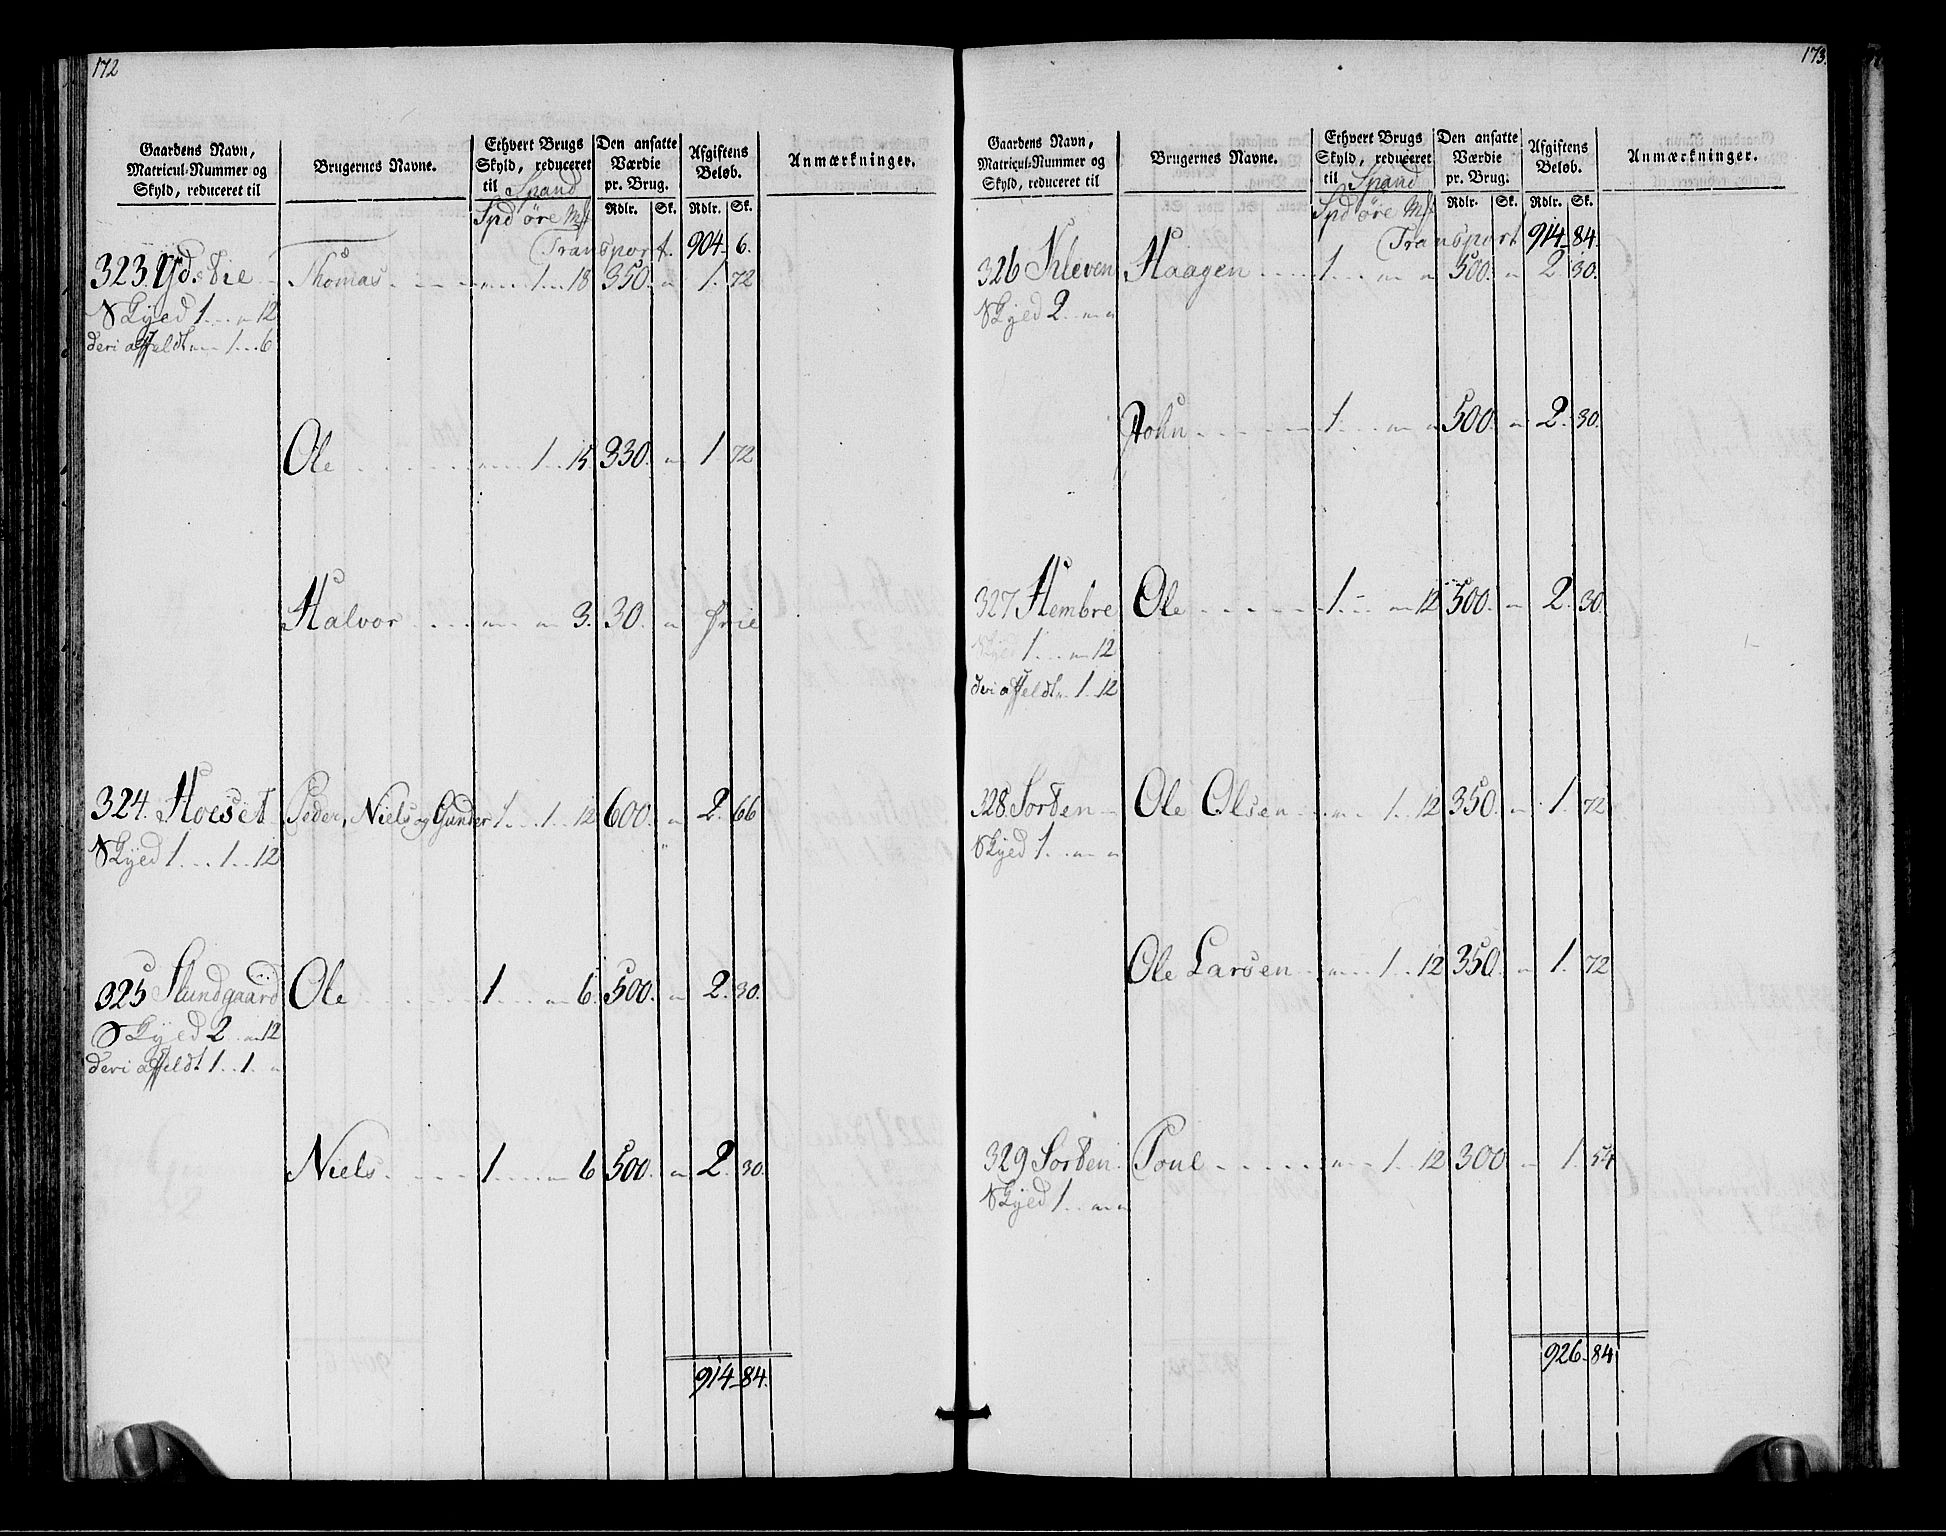 172
Gaardens Navn, Matricul-Nummer og Skyld, reduceret til
Brugernes Navne.
Ethvert Brugs Skyld, reduceret til Spand
Den ansatte Værdie pr. Brug.
Afgiftens Beløb.
Anmærkninger.
Spd öre Mk
Rdlr. Sk. Rdlr. Sk.
Transport. 904. 6.
323. Thomas 1 18 350. " 1. 72
Skyld 1 " 12
deri affeldt " 1 6
Ole 1 15 330. " 1 72
Halvor " " 3. 30. " frie
324. Hoeset Peder, Niels og Gunder 1 1 12 600. " 2. 66
Skyld 1 1 12
325 Ole 1 " 6. 500. " 2. 30.
Skyld 2 " 12
deri affeldt 1 1 "
Niels 1 " 6 500. " 2. 30.
914 84.
173.
Gaardens Navn, Matricul-Nummer og Skyld, reduceret til
Brugernes Navne.
Ethvert Brugs Skyld, reduceret til Spand
Den ansatte Værdie pr. Brug.
Afgiftens Beløb.
Anmærkninger.
Spd öre Mk
Rdlr. Sk. Rdlr. Sk.
Transport 914 84.
326 Kleven Haagen 1 " " 500. " 2. 30.
Skyld 2 " "
John 1 " " 500. " 2. 30.
327 Hembre Ole 1 " 12 500. " 2. 30.
Skyld 1 " 12
deri affeldt " 1 12
328. Ole Olsen " 1 12 350. " 1. 72
Skyld 1 " "
Ole Larsen " 1 12 350. " 1. 72
329 Poul " 1 12 300 " 1. 54
Skyld 1 " "
926 84